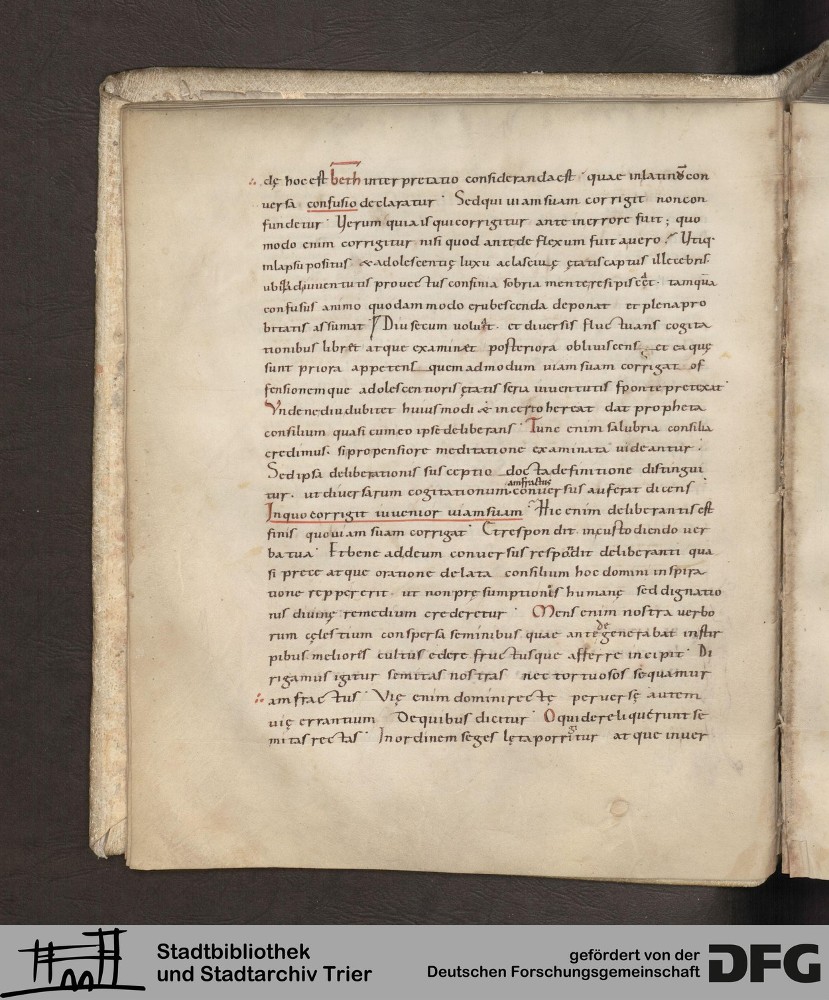 dę hoc est beth interpretatio consideranda est · quae in latinū con
uersa confusio declaratur · Sed qui uiam suam corrigit non con
fundetur · Uerum quia is qui corrigitur ante in errore fuit ; quo
modo enim corrigitur nisi quod ante deflexum fuit a uero ? Utiq·
in lapsu positus & adolescentię luxu ac lasciuię ętatis captus illecebris
ubi ad iuuentutis prouectus confinia sobria mente resipiscat · tamquā
confusus animo quodammodo erubescenda deponat et plena pro
bitatis assumat Diu secum uoluat · et diuersis fluctuans cogita
tionibus libret atque examinet posteriora obliuiscens et ea quę
sunt priora appetens quemadmodum uiam suam corrigat of
fensionemque adolescentioris ętatis seria iuuentutis fronte pretexat ·
Unde ne diu dubitet huiusmodi & incerto hereat dat propheta
consilium quasi cum eo ipse deliberans · Tunc enim salubria consilia
credimus · si propensiore meditatione examinata uideantur ·
Sed ipsa deliberationis susceptio docta definitione distingui
tur · ut diuersarum cogitationum conuersus auferat dicens ·
amfractus
In quo corrigit iuuenior uiam suam · Hic enim deliberantis est
finis quo uiam suam corrigat · Et respondit in custodiendo uer
ba tua · Et bene ad deum conuersus respōdit deliberanti qua
si prece atque oratione delata consilium hoc domini inspira
tione reppererit · ut non pręsumptionis humanę sed dignatio
nis diuinę remedium crederetur · Mens enim nostra uerbo
rum cęlestium conspersa seminibus quae ante degenerabat instir
pibus melioris cultus edere fructusque afferre incipit · Di
rigamus igitur semitas nostras nec tortuosos sequamur
amfractus · Vię enim domini rectę peruersę autem
uię errantium De quibus dicitur · O qui dereliquerunt se
mitas rectas · In ordinem seges lęta porrigitur atque inuer
Stadtbibliothek
und Stadtarchiv Trier
gefördert von der
Deutschen Forschungsgemeinschaft
DFG